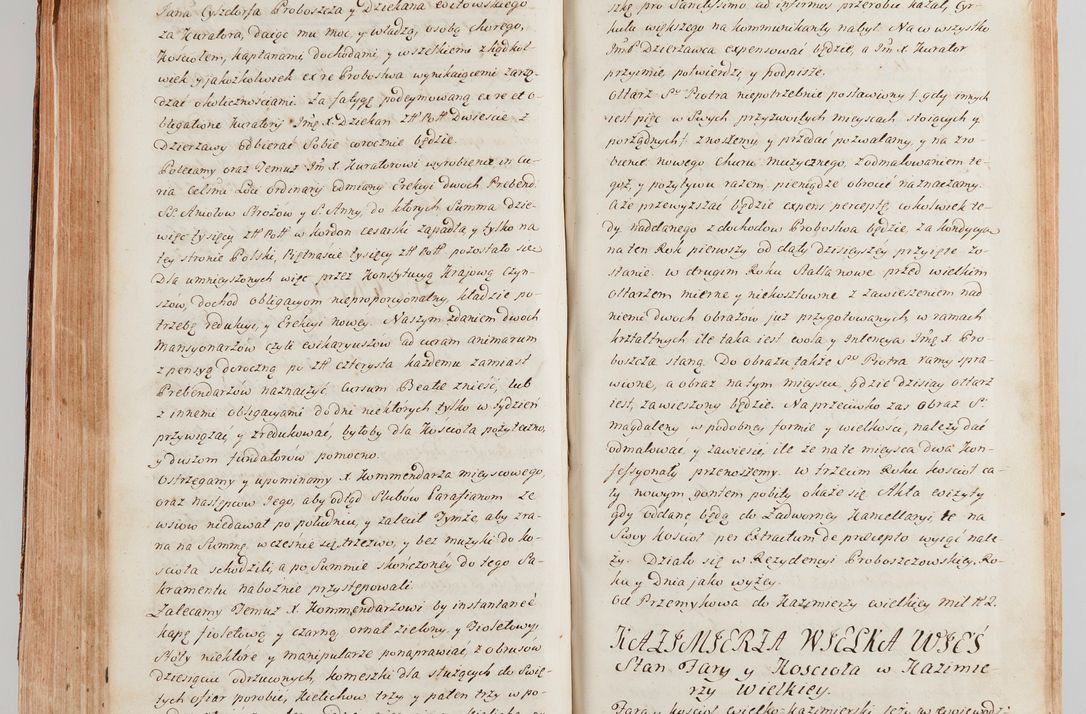 Jana Cyszdorfa Proboszcza y Dziekana
za Kuratora, daiąc mu moc, y władzą, osobą chorego,
Kosciołem, kapłanami, dochodami, y wszelkiemi zkądkol-
wiek y jakożkolwiek ex re Probostwa wynikaiącemi zarzą-
dzać okolicznosciami. Za fatygę podeymowaną ex re et o-
bligatione Kuratoryi Jmę X. Dziekan ztt Polt Dwieście z
Dzierzawy odbierać Sobie corocznie będzie.
Polecamy oraz Temuż Jm X. Kuratorowi wyrobienie in Cu-
ria Celsmi Loci Ordinarii odmiany Erekcyi dwoch Prebend.
SS. Aniołow Strożow y S. Anny, do ktorych Summa dzie-
więć tysięcy ztt Polt w kordon cesarski zapadła y tylko na
tey stronie Polski, Piętnascie tysięcy ztt Polt pozostało się
Dla umnieyszonych więc przez Konstytucyą Krajową Czyn-
szow, dochod obligacyom nieproporcyonalny, kładzie po-
trzebę redukcyi, y Erekcyi nowey. Naszym zdaniem dwoch
Mansyonarzow czyli wikaryuszow ad curam animarum
z pensyą doroczną po ztt czterysta każdemu zamiast
Prebendarzow naznaczyć Cursum Beatæ znieść, lub
z innemi obligacyami do dni niektorych tylko w tydzień
przywiązać, y zredukować, byłoby dla Koscioła pożyteczno,
y duszom fundatorow pomocno.
Ostrzegamy y upominamy X. Kommendarza mieyscowego,
oraz następcow Jego, aby odtąd Slubow Parafianom ze
wsiow niedawał po południu, y zalecił Tymże, aby zra-
na na Summę, wcześnie się, trzezwo, y bez muzyki do ko-
scioła schodzili, a po Summie skończoney do tego Sa-
kramentu nabożnie przystępowali.
Zalecamy Temuż X. Kommendarzowi by instantanee
kapę fioletową y czarną, ornat zielony, y Fioletowy,
Stoły niektore y manipularze ponaprawiać, z obrusow
dziesiąciu odrzuconych, komeszki dla służących do Swię-
tych ofiar porobić, Kielichow trzy y paten trzy w po-
szkę pro Sanctissimo ad infirmos przerobić kazał, Cyr-
kułu większego na kommunikanty nabył. Na co wszystko
Jmć Dzierzawca expensować będzie, a Jm X. Kurator
przyimie potwierdzi, y podpisze.
Ołtarz Sgo Piotra niepotrzebnie postawiony / gdy innych
iest pięć w Swych przyzwoitych mieyscach stojących y
porządnych / znosiemy, y przedać pozwalamy, y na zro-
bienie nowego Choru muzycznego, z odmalowaniem te-
goż, y pozytywu razem, pieniądze obrocić naznaczamy.
A że przewyższać będzie expens perceptę, cokolwiek te-
dy naddanego z dochodow Probostwa będzie, za kondycyą
na ten Rok pierwszy od daty dzisiayszey przyięte zo-
stanie. w drugim Roku Baltasowe przed wielkim
ołtarzem mierne y niekosztowne z zawieszeniem nad
niemi dwoch obrazow już przygotowanych, w ramach
ksztaltnych ile taka iest wola y Intencya Jmę X. Pro-
boszcza staną. Do obrazu także Sgo Piotra ramy spra-
wione, a obraz na tym mieyscu, gdzie dzisiay ołtarz
iest, zawieszony będzie. Na przeciwko zaś Obraz S.
Magdaleny w podobney formie y wielkosci, należy dać
odmalować, y zawiesić, ile że na te mieysca dwa Kon-
fessyonały przenosiemy. w trzecim Roku kościoł ca-
ły nowym gontem pobity okaże się. Akta wizyty
gdy oddane będą do Zadworney Kancellaryi, te na
Swoy kościoł per Extractum de præcepto wyiąć nale-
ży. Działo się w Rezydencyi Proboszczowskiey, Ro-
ku y Dnia jako wyżey.
Od Przemykowa do Kazimierzy wielkiey mil N 2.
KAZIMIERZA WIELKA WIEŚ
Stan Fary y Koscioła w Kazimie-
rzy Wielkiey.
Fara y kościoł wielko-kazimierski leży w Wojewodz: